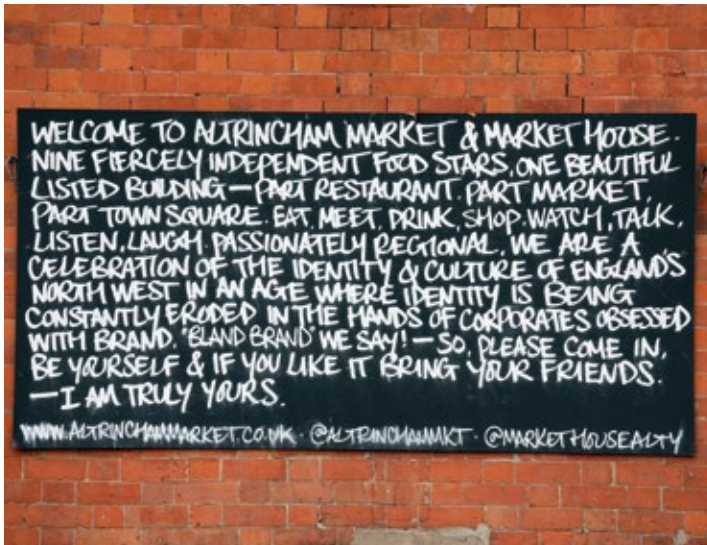 WELCOME TO ALTRINCHAM MARKET & MARKET HOUSE.
NINE FIERCELY INDEPENDENT FOOD STARS. ONE BEAUTIFUL
LISTED BUILDING — PART RESTAURANT. PART MARKET.
PART TOWN SQUARE. EAT. MEET. DRINK. SHOP. WATCH. TALK.
LISTEN. LAUGH. PASSIONATELY REGIONAL. WE ARE A
CELEBRATION OF THE IDENTITY & CULTURE OF ENGLAND'S
NORTH WEST IN AN AGE WHERE IDENTITY IS BEING
CONSTANTLY ERODED IN THE HANDS OF CORPORATES OBSESSED
WITH BRAND. "BLAND BRAND" WE SAY! — SO, PLEASE COME IN,
BE YOURSELF & IF YOU LIKE IT BRING YOUR FRIENDS.
— I AM TRULY YOURS.
WWW.ALTRINCHAMMARKET.CO.UK · @ALTRINCHAMMKT · @MARKETHOUSEALTY